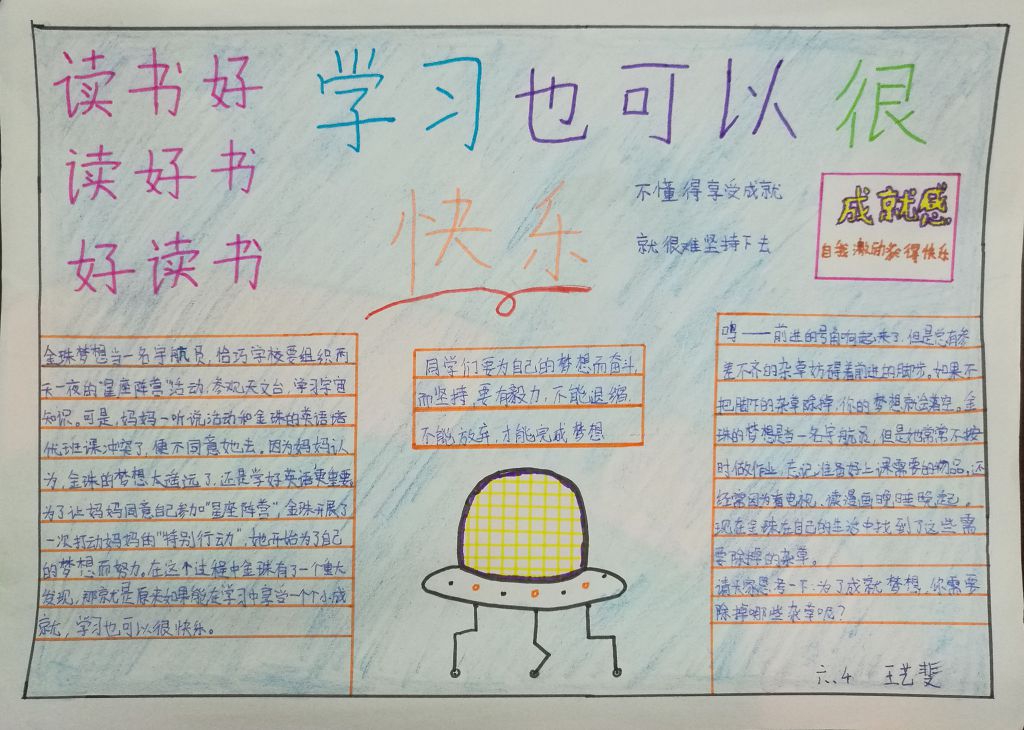 读书好
读好书
好读书
学习也可以很
快乐
不懂得享受成就
就很难坚持下去
成就感
自我激励获得快乐
金珠梦想当一名宇航员,恰巧学校要组织两
天一夜的“星座阵营”活动,参观天文台,学习宇宙
知识。可是,妈妈一听说活动和金珠的英语培
优班课冲突了,便不同意她去。因为妈妈认
为,金珠的梦想太遥远了,还是学好英语更重要
为了让妈妈同意自己参加“星座阵营”,金珠开展了
一次打动妈妈的“特别行动”,她开始为了自己
的梦想而努力。在这个过程中金珠有了一个重大
发现,那就是原来如果能在学习中享受一个个小成
就,学习也可以很快乐。
同学们要为自己的梦想而奋斗
而坚持,要有毅力,不能退缩,
不能放弃,才能完成梦想
呜——前进的号角响起来了,但是总有参
差不齐的杂草妨碍着前进的脚步。如果不
把脚下的杂草除掉,你的梦想就会落空。金
珠的梦想是当一名宇航员,但是她常常不按
时做作业,忘记准备好上课需要的物品,还
经常因为看电视、读漫画晚睡晚起。
现在金珠在自己的生活中找到了这些需
要除掉的杂草。
请大家思考一下:为了成就梦想,你需要
除掉哪些杂草呢?
六.4 王艺斐